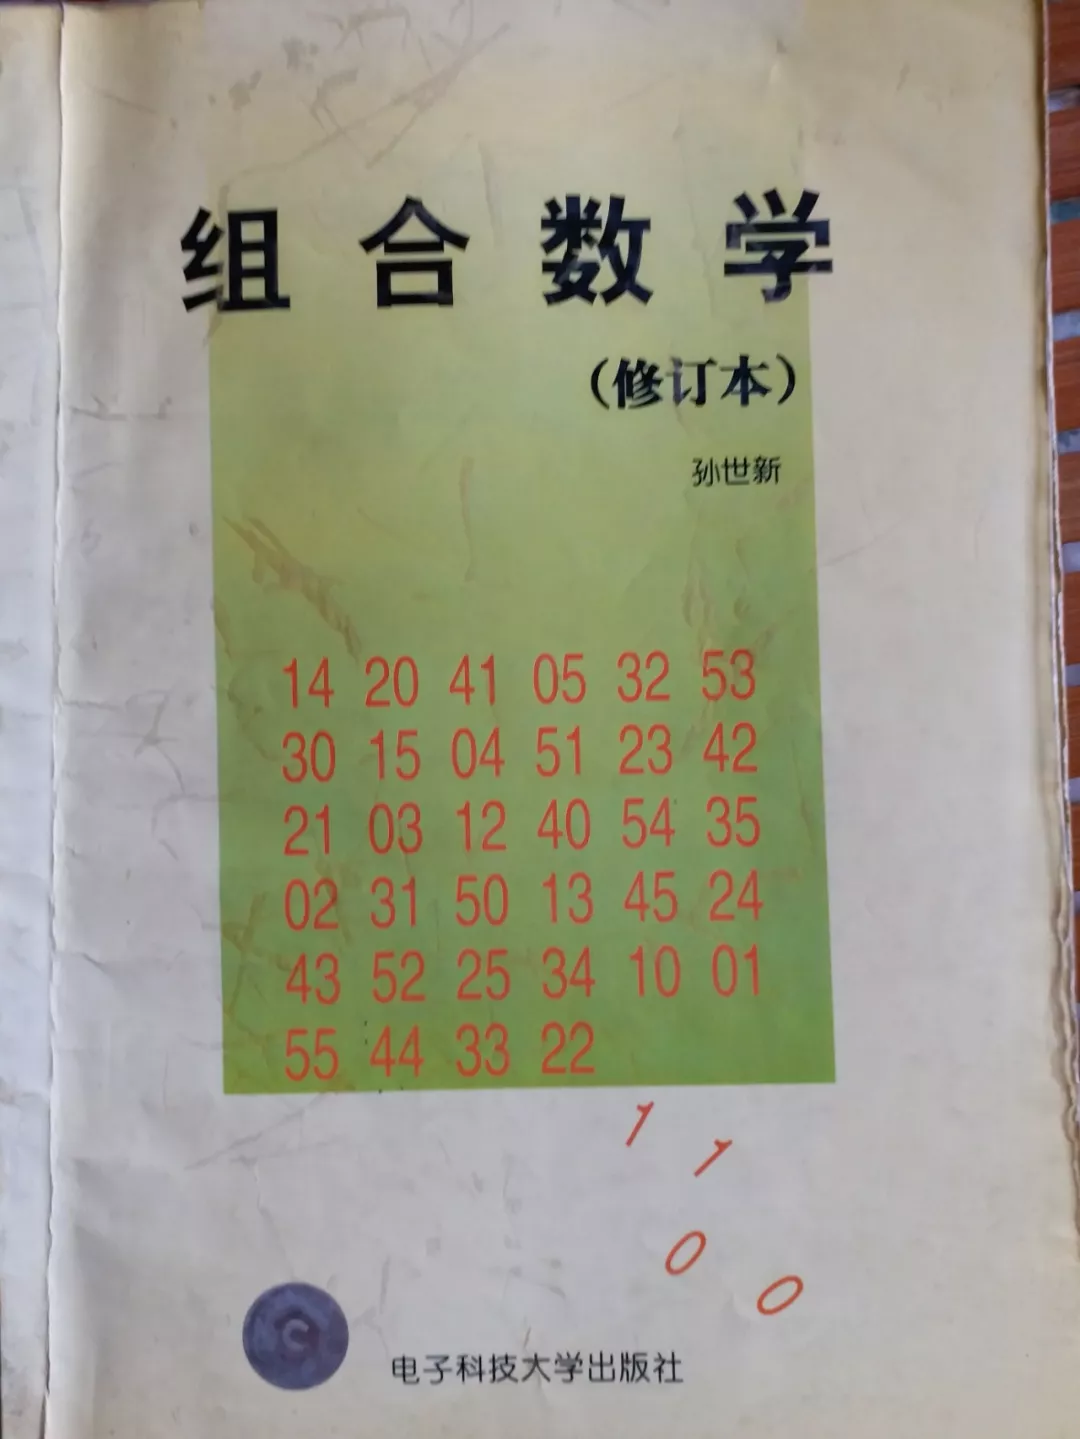 组合数学
（修订本）
孙世新
14 20 41 05 32 53
30 15 04 51 23 42
21 03 12 40 54 35
02 31 50 13 45 24
43 52 25 34 10 01
55 44 33 22
1
1
0
0
C
电子科技大学出版社